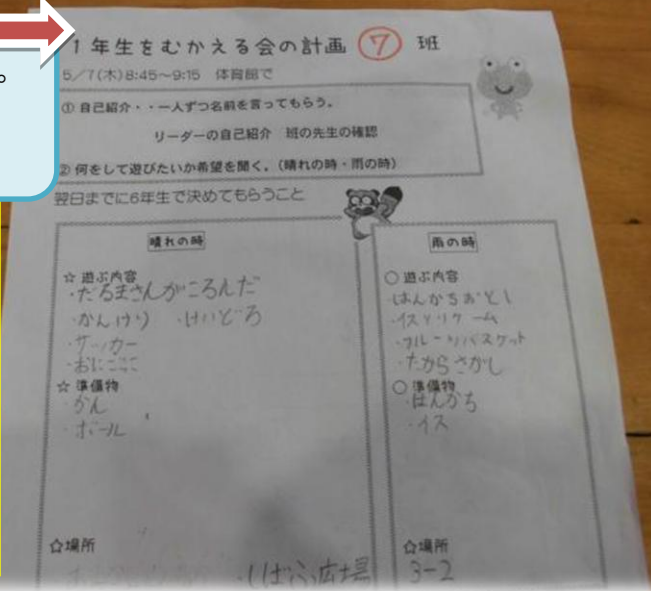 。
1年生をむかえる会の計画 ⑦ 班
5/7(木)8:45~9:15 体育館で
① 自己紹介・・一人ずつ名前を言ってもらう。
リーダーの自己紹介 班の先生の確認
② 何をして遊びたいか希望を聞く。(晴れの時・雨の時)
翌日までに6年生で決めてもらうこと
晴れの時
☆ 遊ぶ内容
・だるまさんがころんだ
・かんけり ・けいどろ
・サッカー
・おにごっこ
☆ 準備物
・かん
・ボール
☆場所
・しばふ広場
雨の時
○ 遊ぶ内容
・はんかちおとし
・イスとりゲーム
・フルーツバスケット
・たからさがし
○ 準備物
・はんかち
・イス
☆場所
3-2